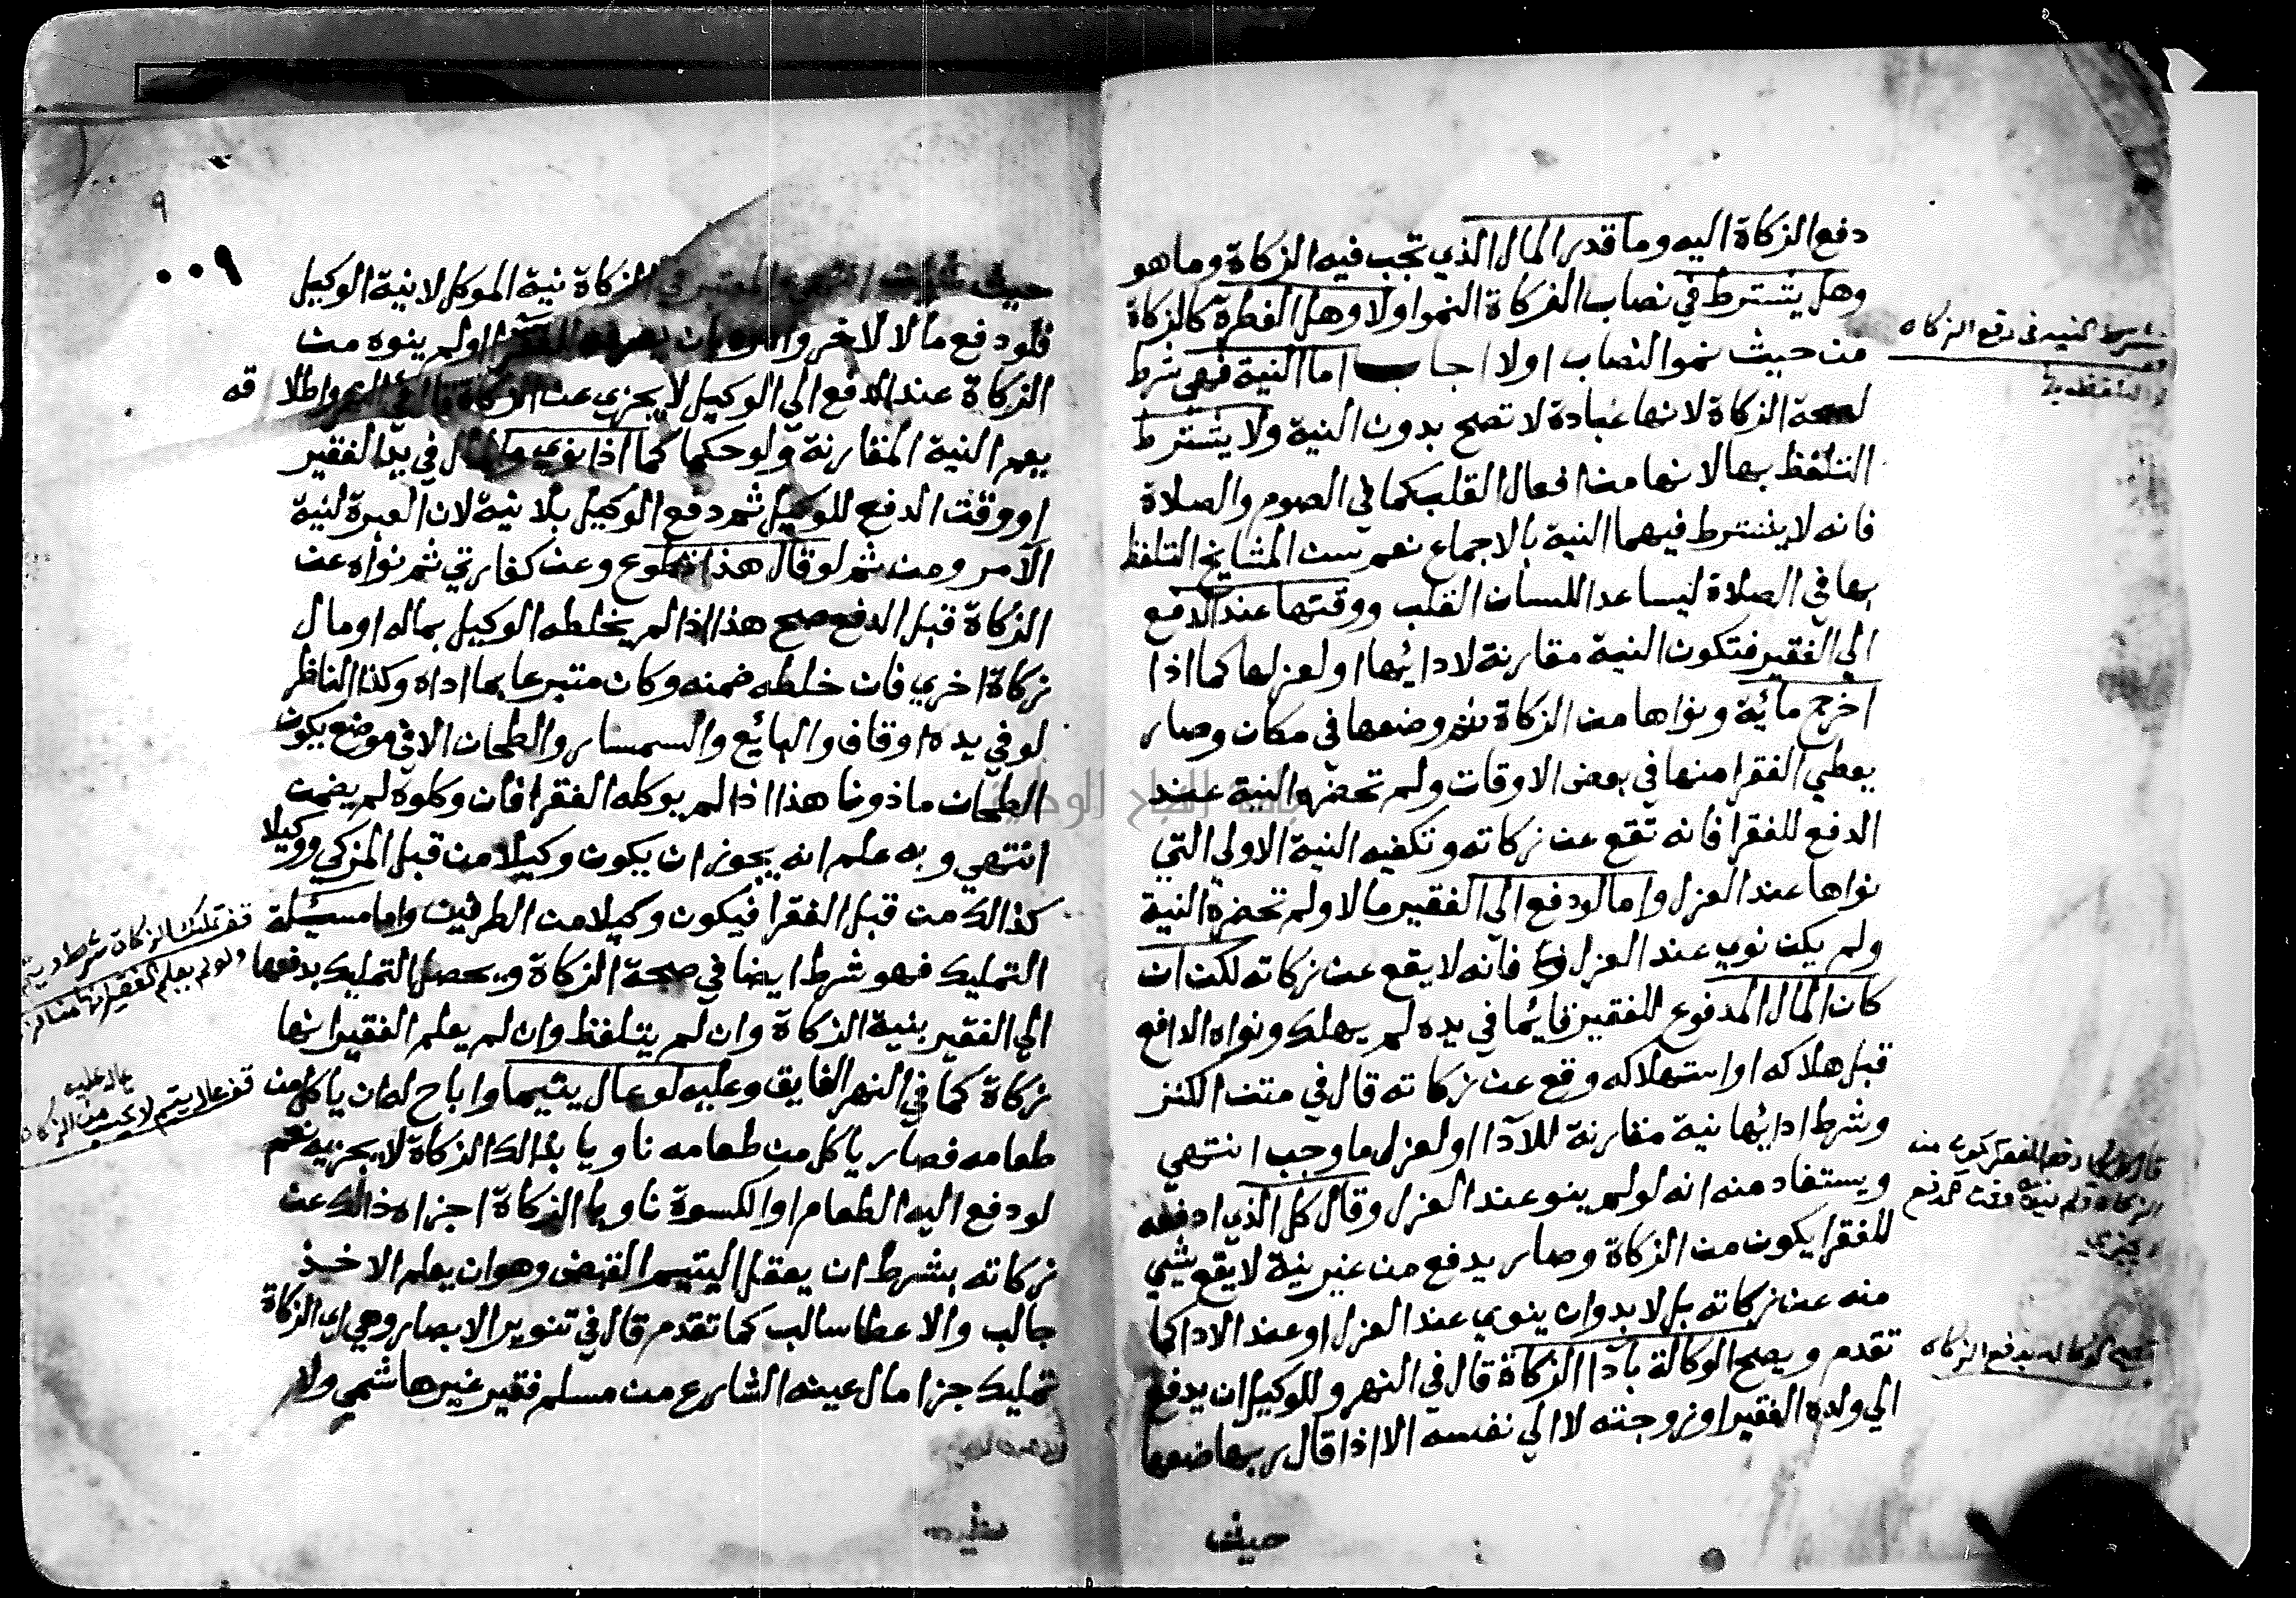 دفع الزكاة اليه وما قدر المال الذي تجب فيه الزكاة وما هو
وهل يشترط في نصاب الزكاة النمو اولا وهل الفطرة كالزكاة
من حيث نمو النصاب اولا اجاب اما النية فهي شرط
لصحة الزكاة لانها عبادة لا تصح بدون النية ولا يشترط
التلفظ بها لانها من افعال القلب كما في الصوم والصلاة
فانه لا يشترط فيهما النية بالاجماع نعم سن المشايخ التلفظ
بها في الصلاة ليساعد اللسان القلب ووقتها عند الدفع
الي الفقير فتكون النية مقارنة لادائها او لعزلها كما اذا
اخرج مائة ونواها من الزكاة ثم وضعها في مكان وصار
يعطي الفقرا منها في بعض الاوقات ولم تحضره النية عند
الدفع للفقرا فانه تقع عن زكاته وتكفيه النية الاولي التي
نواها عند العزل واما لو دفع الي الفقير مالا ولم تحضره النية
ولم يكن نوي عند العزل فانه لا يقع عن زكاته لكن ان
كان المال المدفوع للفقير قائما في يده لم يهلك ونواه الدافع
قبل هلاكه او استهلاكه وقع عن زكاته قال في متن الكنز
وشرط ادائها نية مقارنة للادا او لعزل ما وجب انتهي
ويستفاد منه انه لو لم ينو عند العزل وقال كل الذي ادفعه
للفقرا يكون من الزكاة وصار يدفع من غير نية لا يقع شيي
منه عن زكاته بل لا بد وان ينوي عند العزل او عند الادا كما
تقدم ويصح الوكالة بادا الزكاة قال في النهر وللوكيل ان يدفع
الي ولده الفقير او زوجته لا الي نفسه الا اذا قال ربها ضعها
حيث
شرط النيه في دفع الزكاه
الزكاه ولم نيته وقت الدفع
تصح الوكاله بدفع الزكاه
٩
٠٠٩
حيث شئت انتهي والمعتبر في الزكاة نية الموكل لا نية الوكيل
فلو دفع مالا لاخر وامره ان الفقرا ولم ينوه من
الزكاة عند الدفع الي الوكيل لا يجزي عن الزكاة واطلاقه
يعم النية المقارنة ولو حكما كما اذا نوي والمال في يد الفقير
او وقت الدفع للوكيل ثم دفع الوكيل بلا نية لان العبرة لنية
الآمر ومن ثم لو قال هذا تطوع وعن كفارتي ثم نواه عن
الزكاة قبل الدفع صح هذا اذا لم يخلطه الوكيل بماله او مال
زكاة اخري فان خلطه ضمنه وكان متبرعا بما اداه وكذا الناظر
لو في يده اوقاف والبائع والسمسار والطحان الا في موضع يكون
الطحان ماذونا هذا اذا لم يوكله الفقرا فان وكلوه لم يضمن
انتهي وبه علم انه يجوز ان يكون وكيلا من قبل المزكي ووكيلا
كذالك من قبل الفقرا فيكون وكيلا من الطرفين واما مسئلة
التمليك فهو شرط ايضا في صحة الزكاة ويحصل التمليك بدفعها
الي الفقير بنية الزكاة وان لم يتلفظ وان لم يعلم الفقير انها
زكاة كما في النهر الفايق وعليه لو عال يتيما واباح له ان ياكل من
طعامه فصار ياكل من طعامه ناويا بذالك الزكاة لا يجزيه نعم
لو دفع اليه الطعام او الكسوة ناويا الزكاة اجزاه ذالك عن
زكاته بشرط ان يعقل اليتيم القبض وهو ان يعلم الاخذ
جالب والاعطا سالب كما تقدم قال في تنوير الابصار وهي اي الزكاة
تمليك جزا مال عينه الشارع من مسلم فقير غير هاشمي ولا
قف تمليك الزكاة شرط
ولو لم يعلم الفقير انها من الز
قف عال يتيم لا من الزكاة